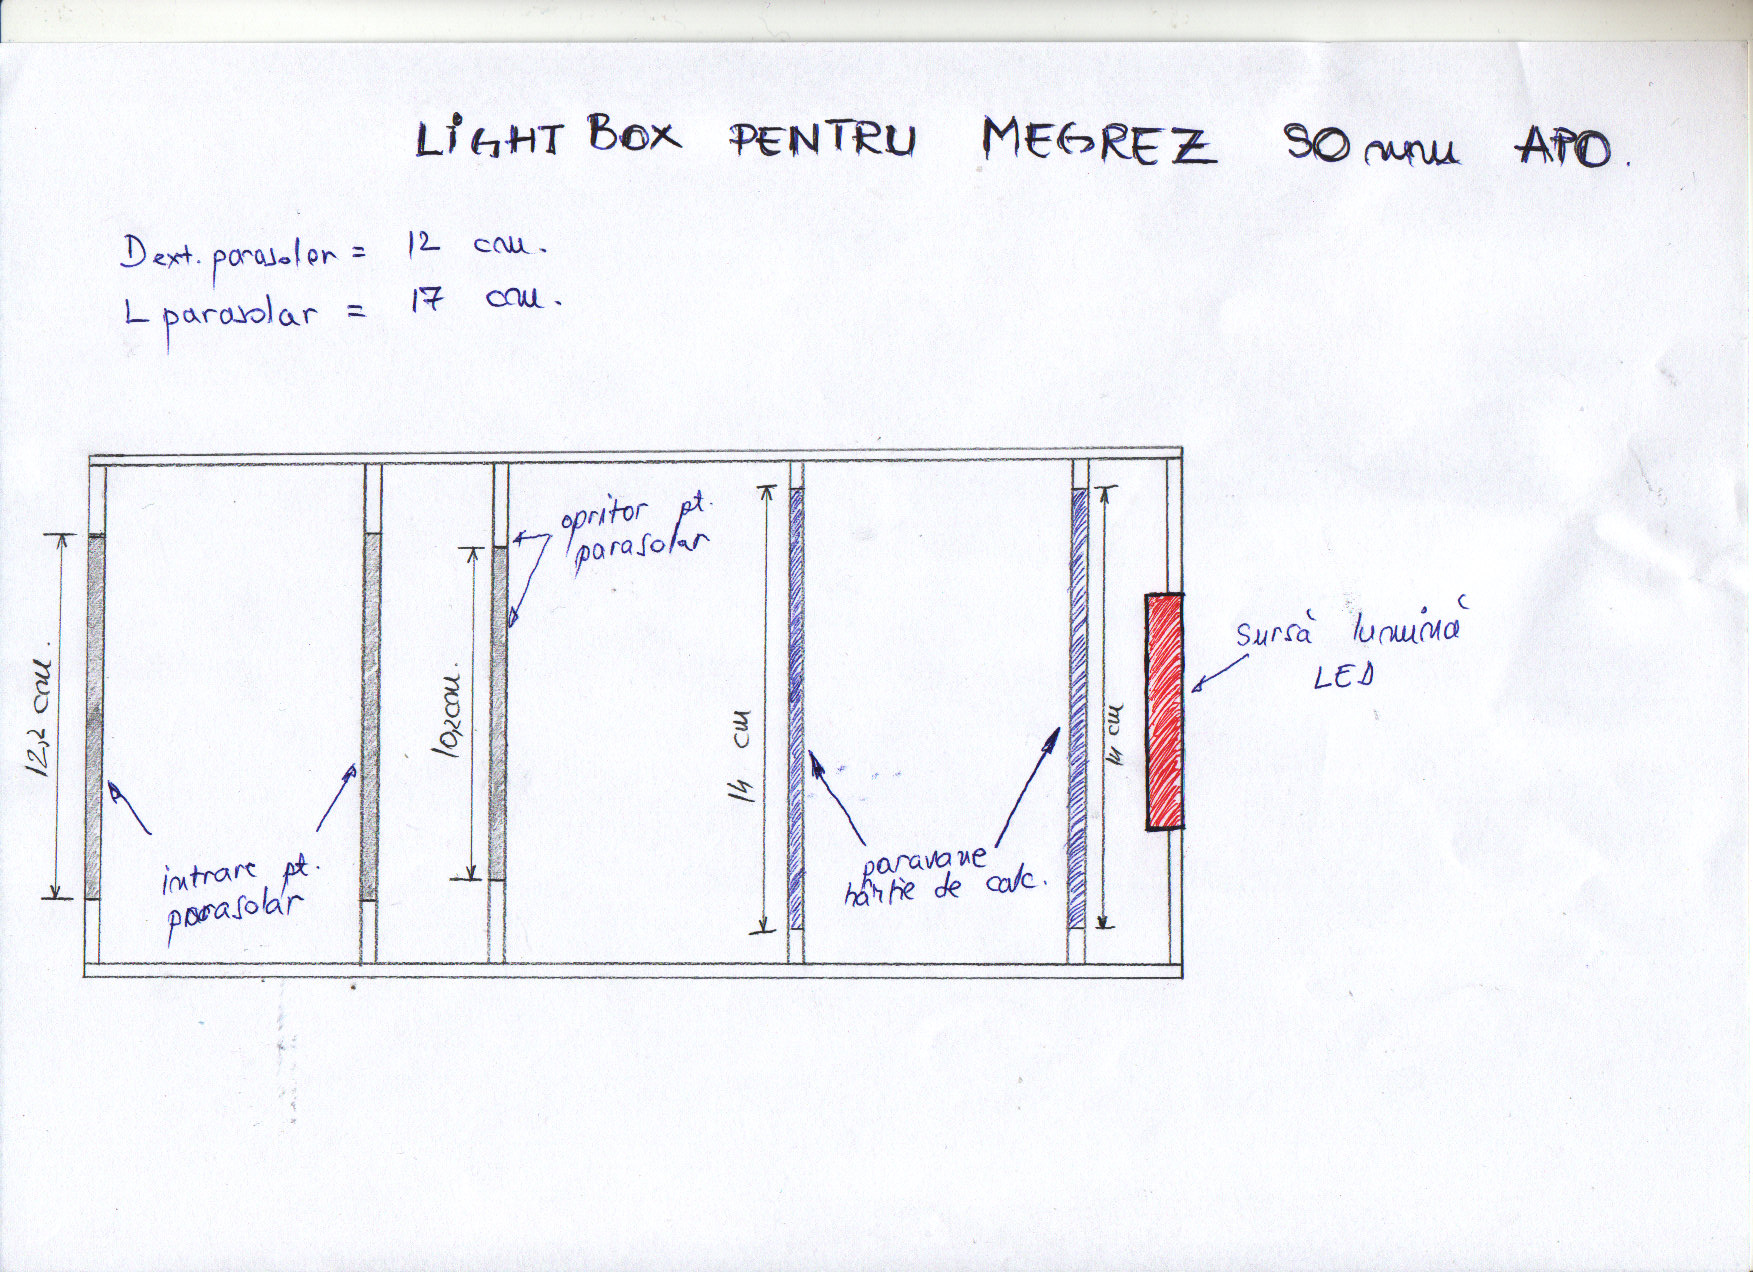 LIGHT BOX PENTRU MEGREZ 90 mm APO.
D ext. parasolar = 12 cm.
L parasolar = 17 cm.
opritor pt.
parasolar
12,2 cm.
10,2 cm.
14 cm
14 cm
sursă lumină
LED
intrare pt.
parasolar
paravane
hârtie de calc.